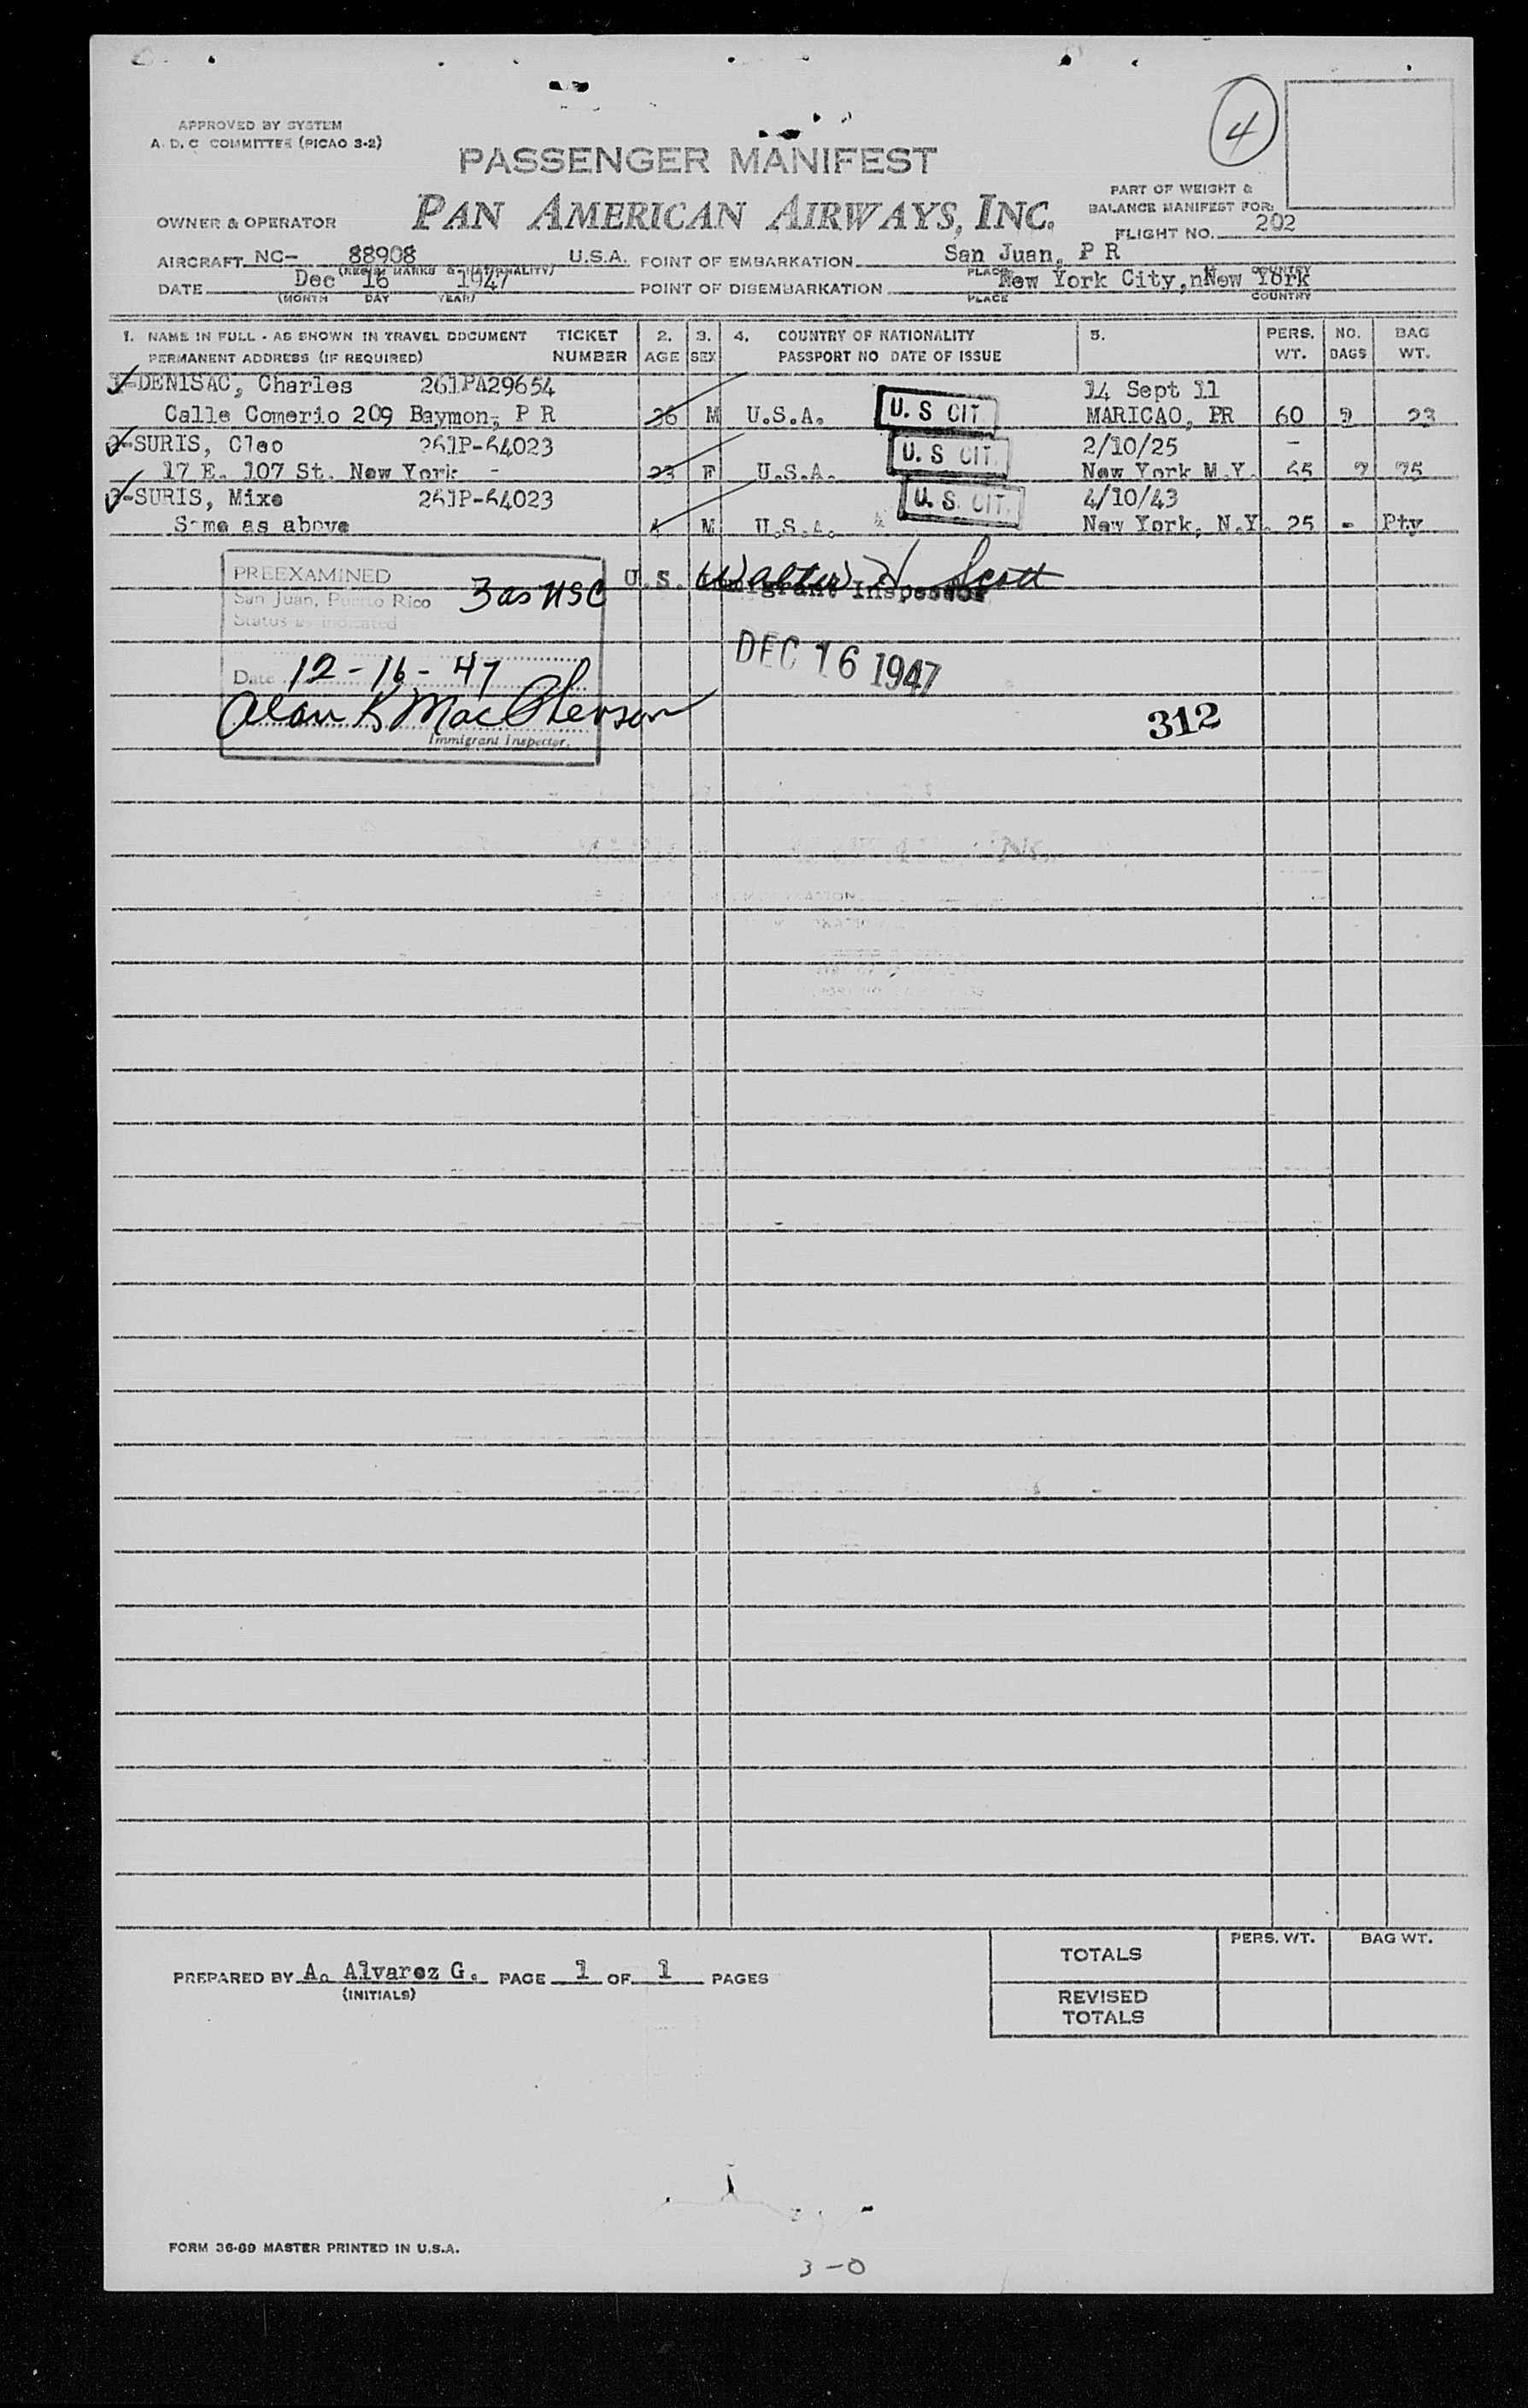 4
APPROVED BY SYSTEM
A. D. C COMMITTEE (PICAO 3-2)
PASSENGER MANIFEST
PART OF WEIGHT &
BALANCE MANIFEST FOR:
OWNER & OPERATOR PAN AMERICAN AIRWAYS, INC.
FLIGHT NO. 202
AIRCRAFT NC- 88908 U.S.A. POINT OF EMBARKATION San Juan, P R
(REGIS. MARKS & NATIONALITY) PLACE COUNTRY
DATE Dec 16 1947 POINT OF DISEMBARKATION New York City,nNew York
(MONTH DAY YEAR) PLACE COUNTRY
1. NAME IN FULL - AS SHOWN IN TRAVEL DOCUMENT TICKET 2. 3. 4. COUNTRY OF NATIONALITY 5. PERS. NO. BAG
PERMANENT ADDRESS (IF REQUIRED) NUMBER AGE SEX PASSPORT NO DATE OF ISSUE WT. BAGS WT.
1-DENISAC, Charles 261PA29654 14 Sept 11
Calle Comerio 209 Baymon, P R 36 M U.S.A. U. S CIT. MARICAO, PR 60 23
2-SURIS, Cleo 261P-64023 2/10/25
17 E. 107 St. New York - 23 F U.S.A. U. S CIT. New York N.Y. 65 75
3-SURIS, Mixe 261P-64023 4/10/43
Same as above 4 M U.S.A. U. S. CIT. New York, N.Y. 25 - Pty
PREEXAMINED
San Juan, Puerto Rico 3 as USC
Status as indicated
U.S. Immigrant Inspector
Walter H Scott
DEC 16 1947
Date 12-16-47
Alan K MacPherson
Immigrant Inspector.
312
PREPARED BY A. Alvarez G. PAGE 1 OF 1 PAGES
(INITIALS)
TOTALS PERS. WT. BAG WT.
REVISED
TOTALS
FORM 36-69 MASTER PRINTED IN U.S.A.
3-0